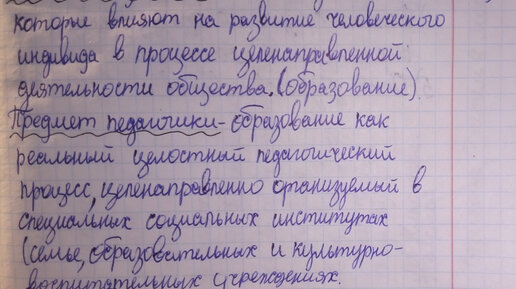 которые влияют на развитие человеческого
индивида в процессе целенаправленной
деятельности общества. (образование)
Предмет педагогики - образование как
реальный целостный педагогический
процесс, целенаправленно организуемый в
специальных социальных институтах
(семье, образовательных и культурно-
воспитательных учреждениях.